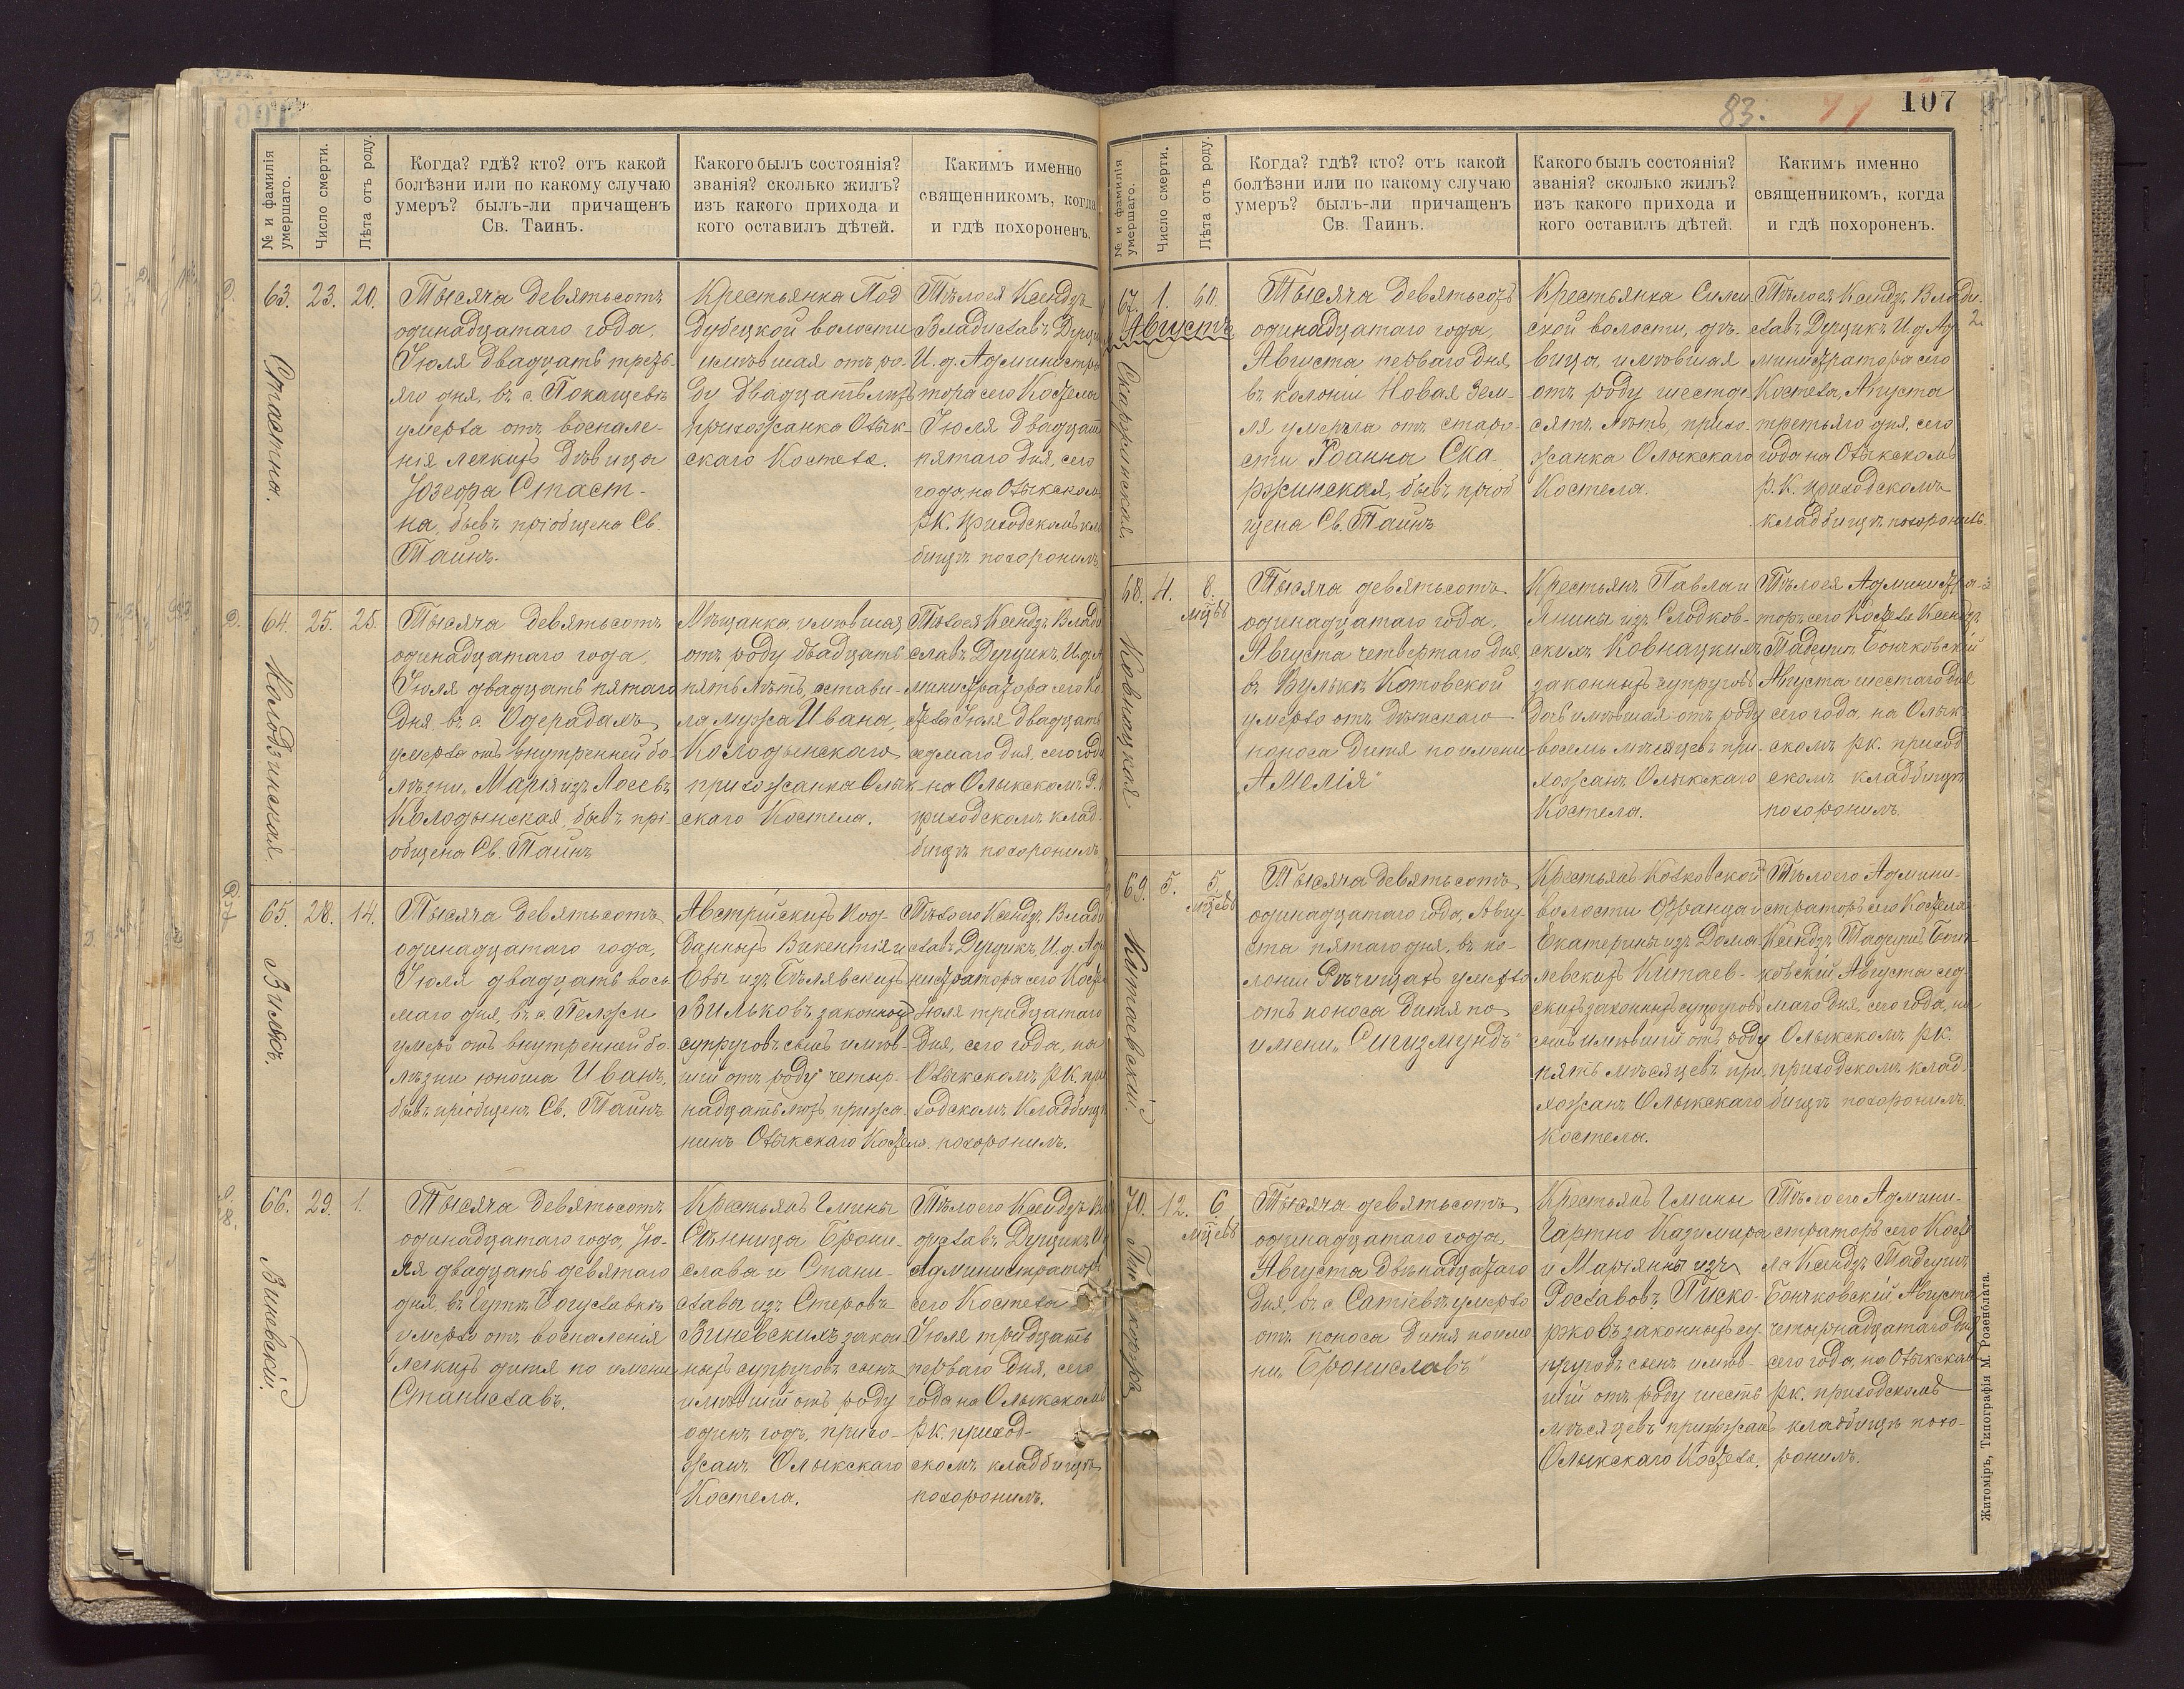 83.
107
№ и фамилія умершаго.
Число смерти.
Лѣта отъ роду.
Когда? гдѣ? кто? отъ какой
болѣзни или по какому случаю
умеръ? былъ-ли причащенъ
Св. Таинъ.
Какого былъ состоянія?
званія? сколько жилъ?
изъ какого прихода и
кого оставилъ дѣтей.
Какимъ именно
священникомъ, когда
и гдѣ похороненъ.
63.
Страстна.
23.
20.
Тысяча девятьсотъ
одинадцатаго года,
Іюля двадцать треть-
яго дня, въ с. Покащевѣ
умерла отъ воспале-
нія легкихъ дѣвица
Юзефа Стаст-
на, бывъ пріобщена Св.
Таинъ.
Крестьянка Под
дубецкой волости
имѣвшая отъ ро-
ду двадцать лѣтъ
прихожанка Олык-
скаго Костела.
Тѣло ея Ксендзъ
Владиславъ Дущик
И. д. Администра
тора сего Костела
Іюля двадцать
пятаго дня, сего
года, на Олыкскомъ
р.к. приходскомъ кла
бищѣ похоронилъ
64.
Колодзинская.
25.
25.
Тысяча девятьсотъ
одинадцатаго года,
Іюля двадцать пятаго
дня въ с. Одерадахъ
умерла отъ внутренней бо-
лѣзни, Марія изъ Лосевъ
Колодзинская, бывъ прі-
общена Св. Таинъ
Мѣщанка, имѣвшая
отъ роду двадцать
пять лѣтъ, остави-
ла мужа Ивана,
Колодзинскаго
прихожанка Олык-
скаго Костела.
Тѣло ея Ксендзъ Влади
славъ Дущикъ, И. д. А
министратора сего Ко
стела Іюля двадцать
седмаго дня, сего года
на Олыкскомъ Р.
приходскомъ клад-
бищѣ похоронилъ
65.
Вилькъ.
28.
14.
Тысяча девятьсотъ
одинадцатаго года,
Іюля двадцать вось-
маго дня, въ с. Пелжи
умеръ отъ внутренней бо-
лѣзни юноша Иванъ,
бывъ пріобщенъ Св. Таинъ
Австрійскихъ под-
данныхъ Викентія и
Евы изъ Бѣлявскихъ
Вильковъ, законныхъ
супруговъ сынъ имѣв-
шій отъ роду четыр-
надцать лѣтъ, прихжа-
нинъ Олыкскаго Костела.
Тѣло его Ксендзъ Влади
славъ Дущикъ, И. д. Адм
нистратора сего Косте
Іюля тридцатаго
дня, сего года, на
Олыкскомъ р.к. при
ходскомъ кладбищѣ
похоронилъ.
66.
Виневскій.
29.
1.
Тысяча девятьсотъ
одинадцатаго года, Ію-
ля двадцать девятаго
дня, въ Гутѣ Богуславкѣ
умерло отъ воспаленія
легкихъ дитя по имени
Станиславъ.
Крестьянъ Гмины
Сѣнница Брони-
слава и Стани-
славы изъ Стеровъ
Виневскихъ закон-
ныхъ супруговъ сынъ
имѣвшій отъ роду
одинъ годъ, прихо-
жанъ Олыкскаго
Костела.
Тѣло его Ксендзъ Вла
диславъ Дущикъ И
Администратора
сего Костела
Іюля тридцать
перваго дня, сего
года на Олыкскомъ
р.к. приход-
скомъ кладбищѣ
похоронилъ.
№ и фамилія умершаго.
Число смерти.
Лѣта отъ роду.
Когда? гдѣ? кто? отъ какой
болѣзни или по какому случаю
умеръ? былъ-ли причащенъ
Св. Таинъ.
Какого былъ состоянія?
званія? сколько жилъ?
изъ какого прихода и
кого оставилъ дѣтей.
Какимъ именно
священникомъ, когда
и гдѣ похороненъ.
67.
Августъ
Скаржинская.
1.
60.
Тысяча девятьсотъ
одинадцатаго года,
Августа перваго дня,
въ колоніи Новая Зем-
ля умерла отъ старо-
сти Іоанна Ска
ржинская, бывъ пріоб
щена Св. Таинъ
Крестьянка Силен
ской волости, дѣ-
вица, имѣвшая
отъ роду шестде-
сятъ лѣтъ, прихо-
жанка Олыкскаго
Костела.
Тѣло ея Ксендзъ Влади-
славъ Дущикъ И. д. Ад
министратора сего
Костела, Августа
третьяго дня, сего
года на Олыкскомъ
р.к. приходскомъ
кладбищѣ похоронилъ.
68.
Ковнацкая
4.
8.
мцѣвъ
Тысяча девятьсотъ
одинадцатаго года,
Августа четвертаго дня
въ Вулькѣ Котовской
умерло отъ дѣтскаго
поноса дитя по имени
„Амелія"
Крестьянъ Павла и
Янины изъ Слодков-
скихъ Ковнацкихъ
законныхъ супруговъ
дочь имѣвшая отъ роду
восемь мѣсяцевъ при-
хожанъ Олыкскаго
Костела.
Тѣло ея Администра-
торъ сего Костела Ксендзъ
Тадеушъ Бончковскій
Августа шестаго дня
сего года, на Олык-
скомъ р.к. приход
скомъ кладбищѣ
похоронилъ.
69.
Китаевскій.
5.
5.
мцевъ
Тысяча девятьсотъ
одинадцатаго года, Авгу-
ста пятаго дня, въ ко-
лоніи Рѣчищахъ умерло
отъ поноса дитя по
имени „Сигизмундъ"
Крестьянъ Колковской
волости Франца и
Екатерины изъ Дома-
левскихъ Китаев-
скихъ законныхъ супруговъ
сынъ имѣвшій отъ роду
пять мѣсяцевъ при
хожанъ Олыкскаго
Костела.
Тѣло его Админи-
страторъ сего Костела
Ксендзъ Тадеушъ Бонч-
ковскій Августа сед-
маго дня, сего года, на
Олыкскомъ р.к.
приходскомъ клад-
бищѣ похоронилъ.
70.
12.
6.
мцевъ
Тысяча девятьсотъ
одинадцатаго года,
Августа двѣнадцатаго
дня, въ с. Сатіевѣ умерло
отъ поноса дитя по име-
ни „Брониславъ"
Крестьянъ Гмины
Чартно Казимира
и Маріанны изъ
Рославовъ Писко-
ржовъ законныхъ су-
пруговъ сынъ имѣв-
шій отъ роду шесть
мѣсяцевъ прихожанъ
Олыкскаго Костела.
Тѣло его Админи-
страторъ сего Косте
ла Ксендзъ Тадеушъ
Бончковскій, Августа
четырнадцатаго дня
сего года, на Олыкском
р.к. приходскомъ
кладбищѣ похо-
ронилъ.
Житоміръ, Типографія М. Розенблата.